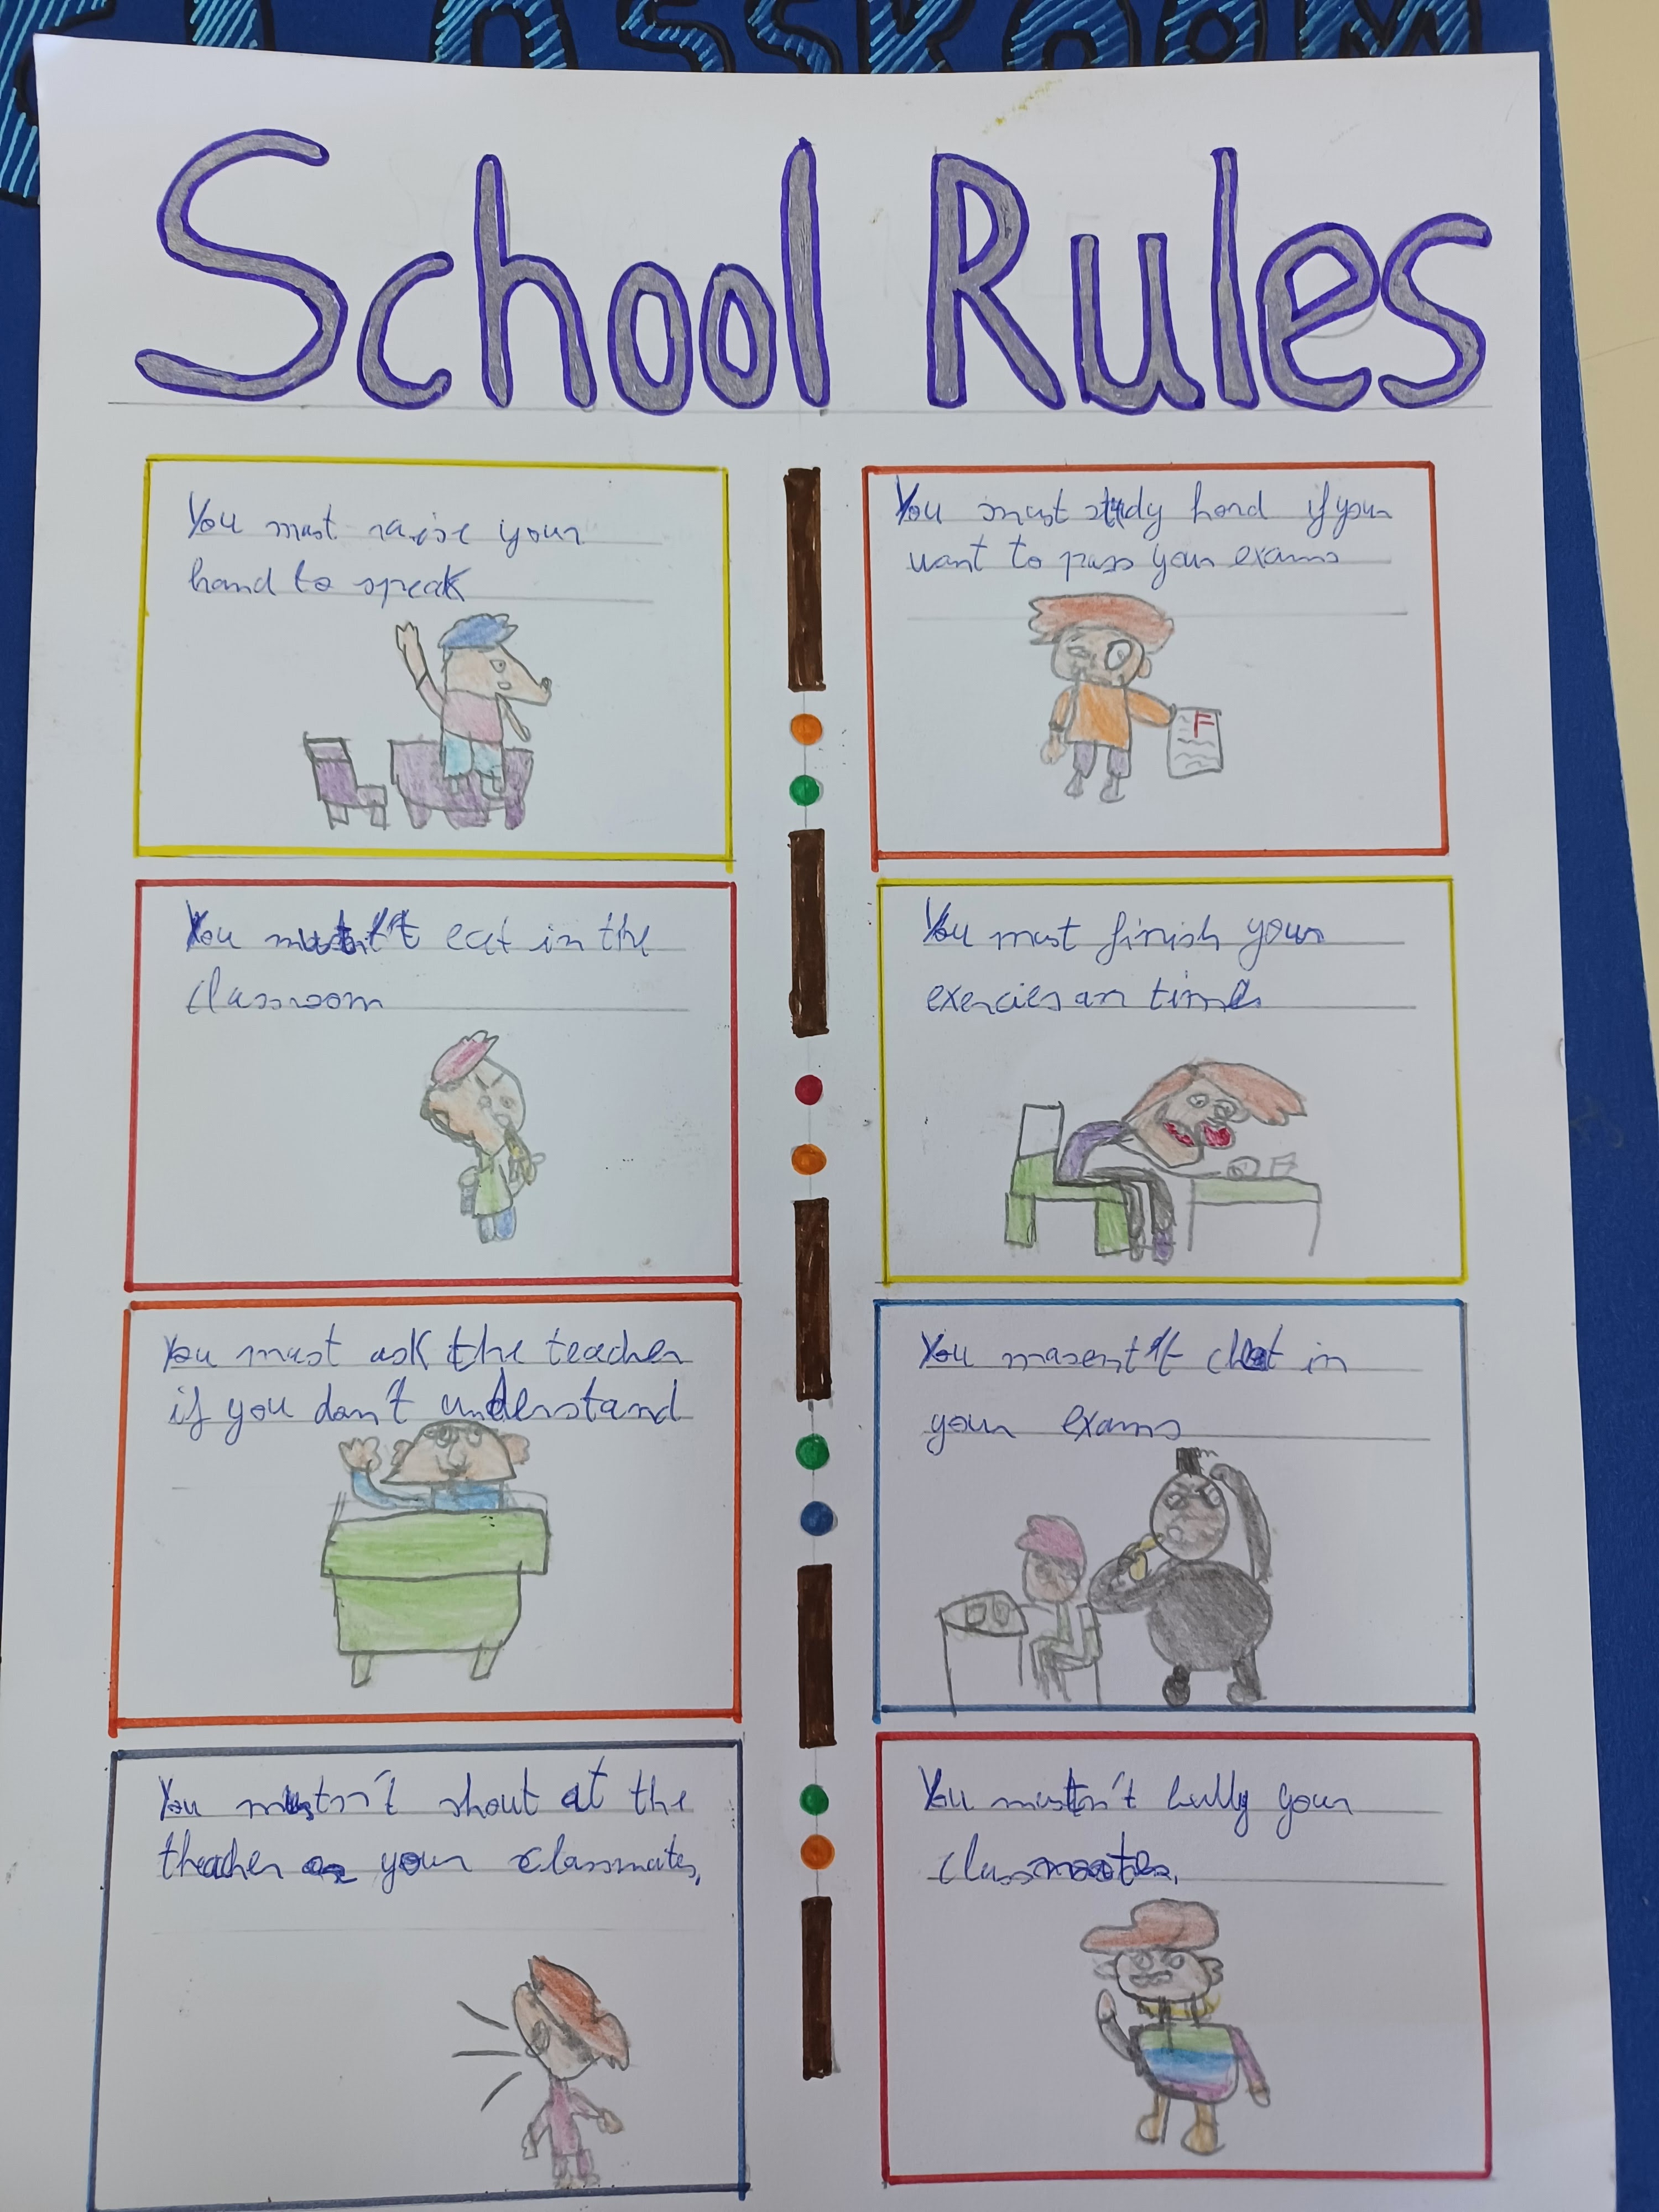 CLASSROOM
School Rules
You must raise your
hand to speak
You must study hard if your
want to pass your exams
F
You mustn't eat in the
classroom
You must finish your
exercies on time
You must ask the teacher
if you don't understand
You in
your exams
You mustn't shout at the
theacher or your classmates.
You mustn't bully your
classmates.